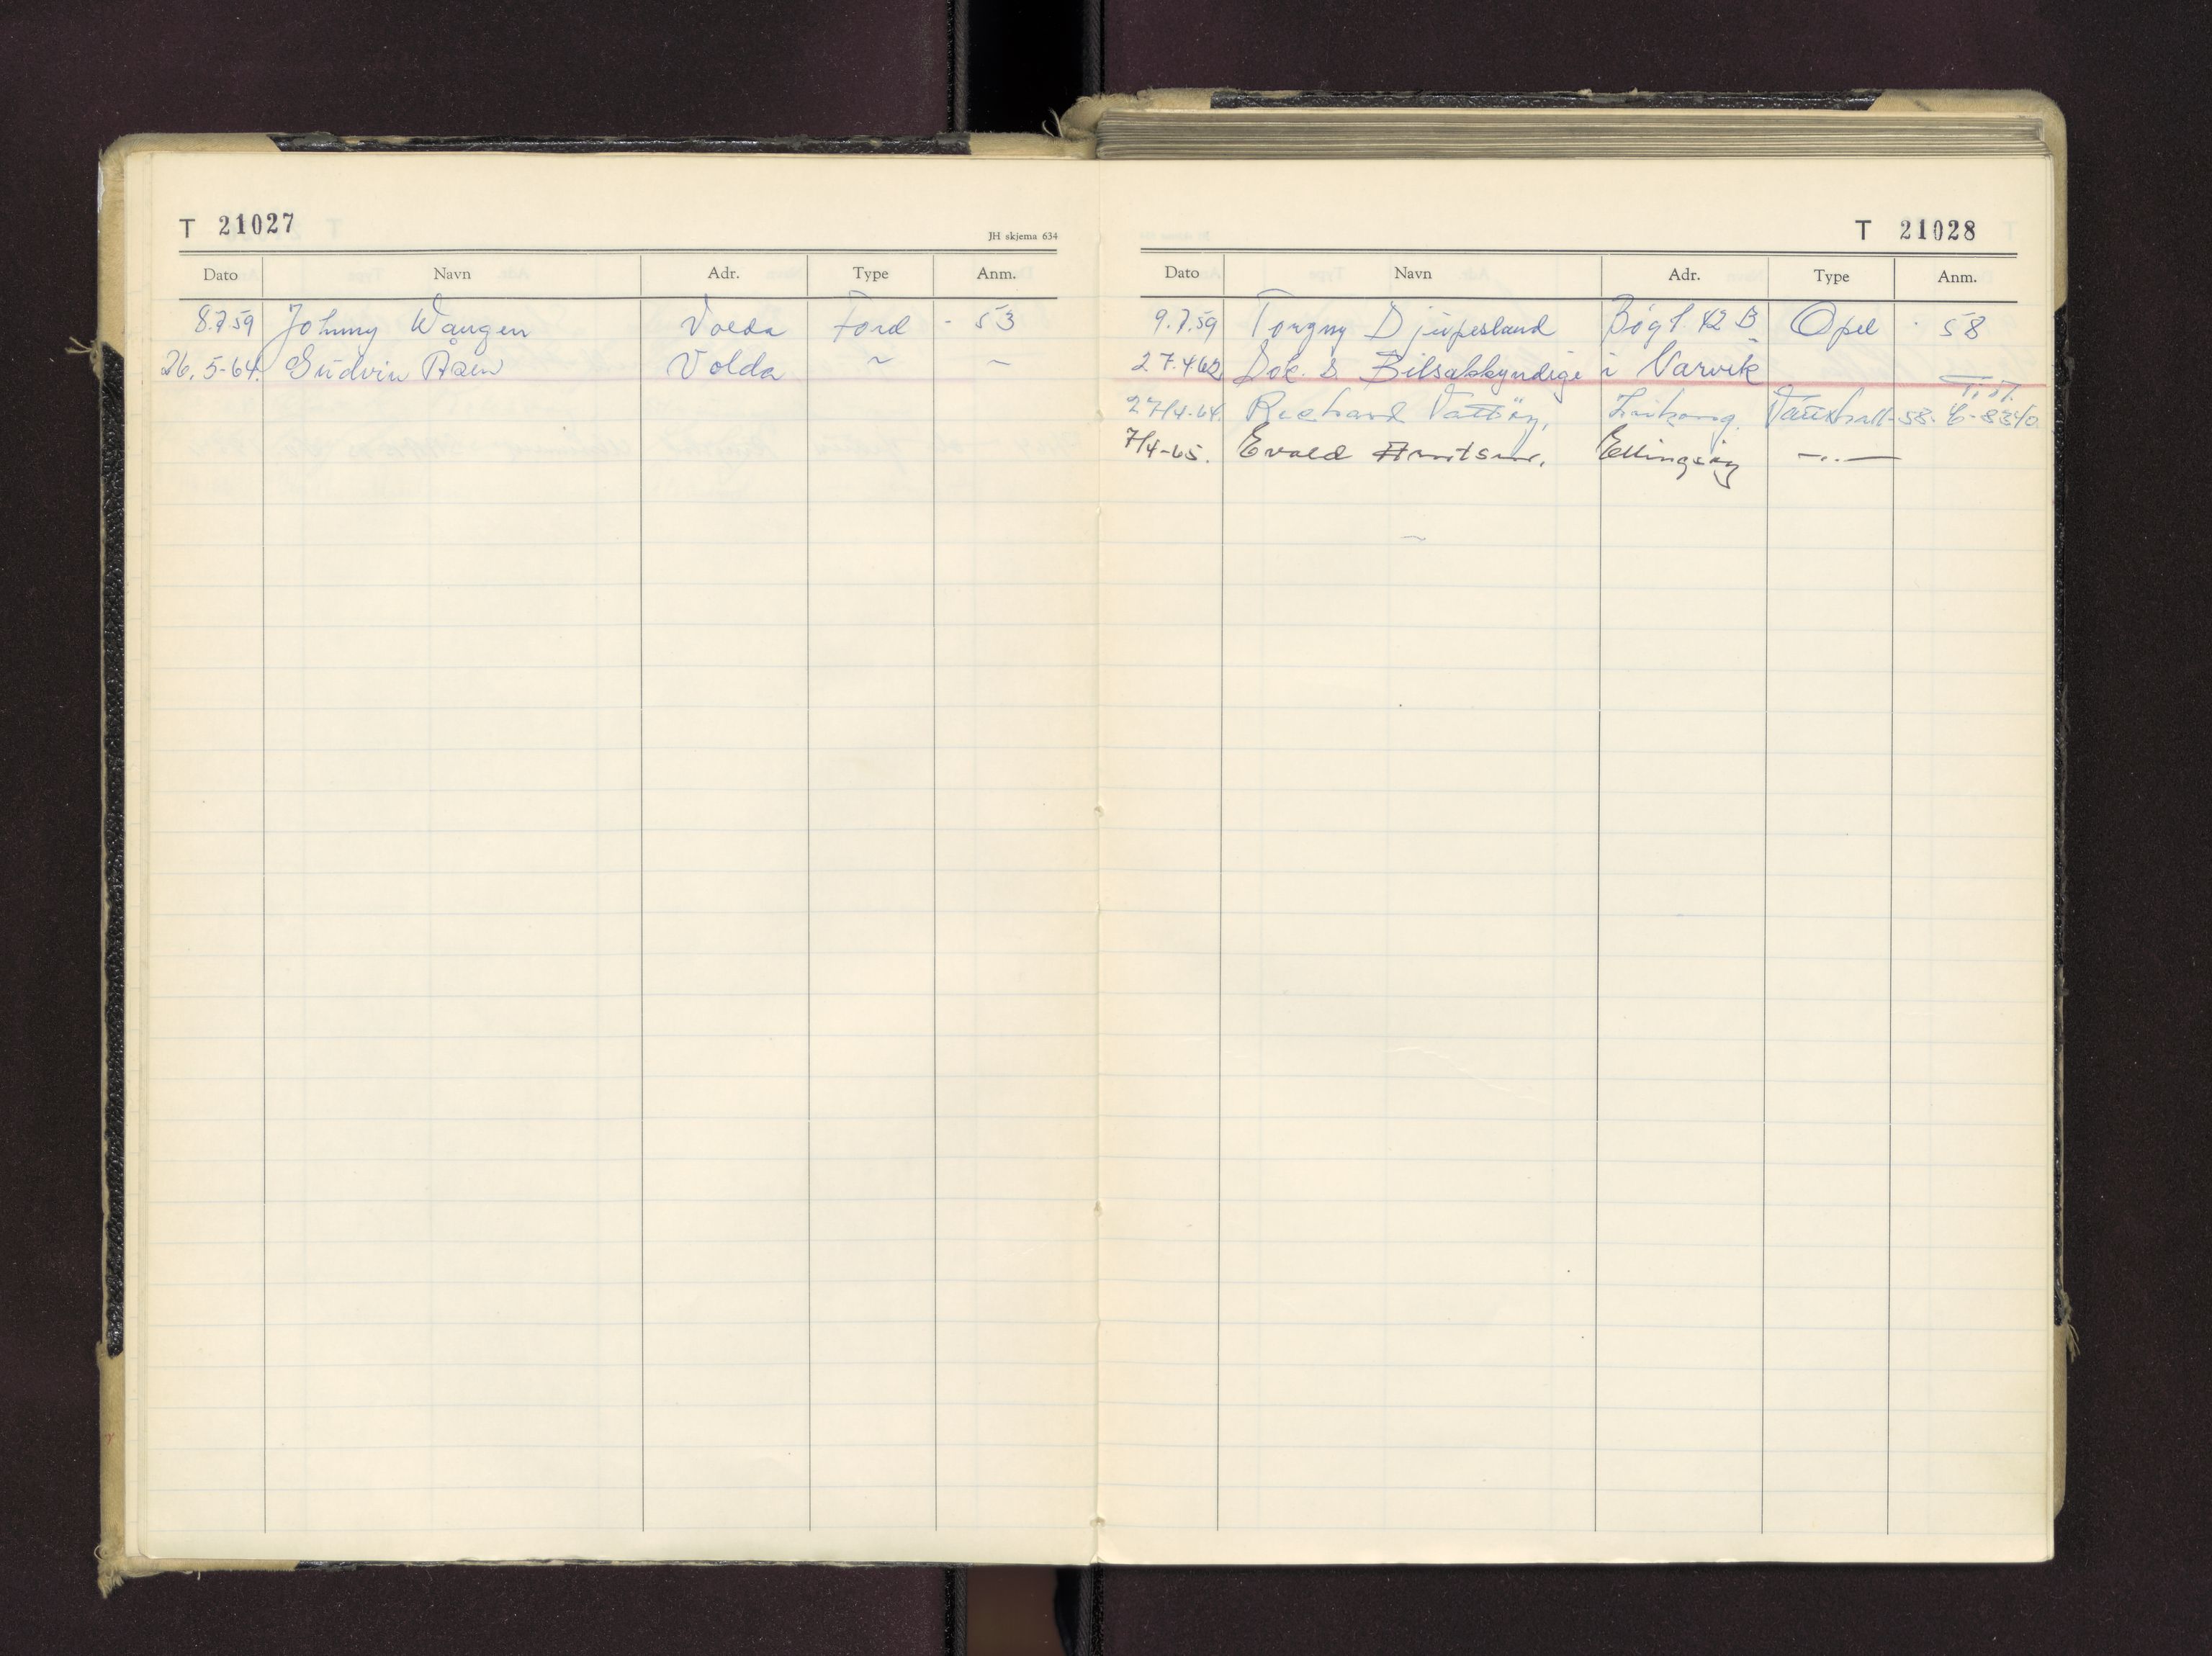 T 21027
JH skjema 634
Dato Navn Adr. Type Anm.
8.7.59 Johnny Wangen Volda Ford - 53
26.5-64. Gudvin Åsen Volda ~ ~
T 21028
Dato Navn Adr. Type Anm.
9.7.59 Torgny Djupesland Bøgt. 42 B Opel - 58
27.4.62 Dok. s. Bilsakkyndige i Narvik
27/4-64. Richard Vattøy, Vauxhall-58.
7/4-65. Evald Ellingsøy —..—